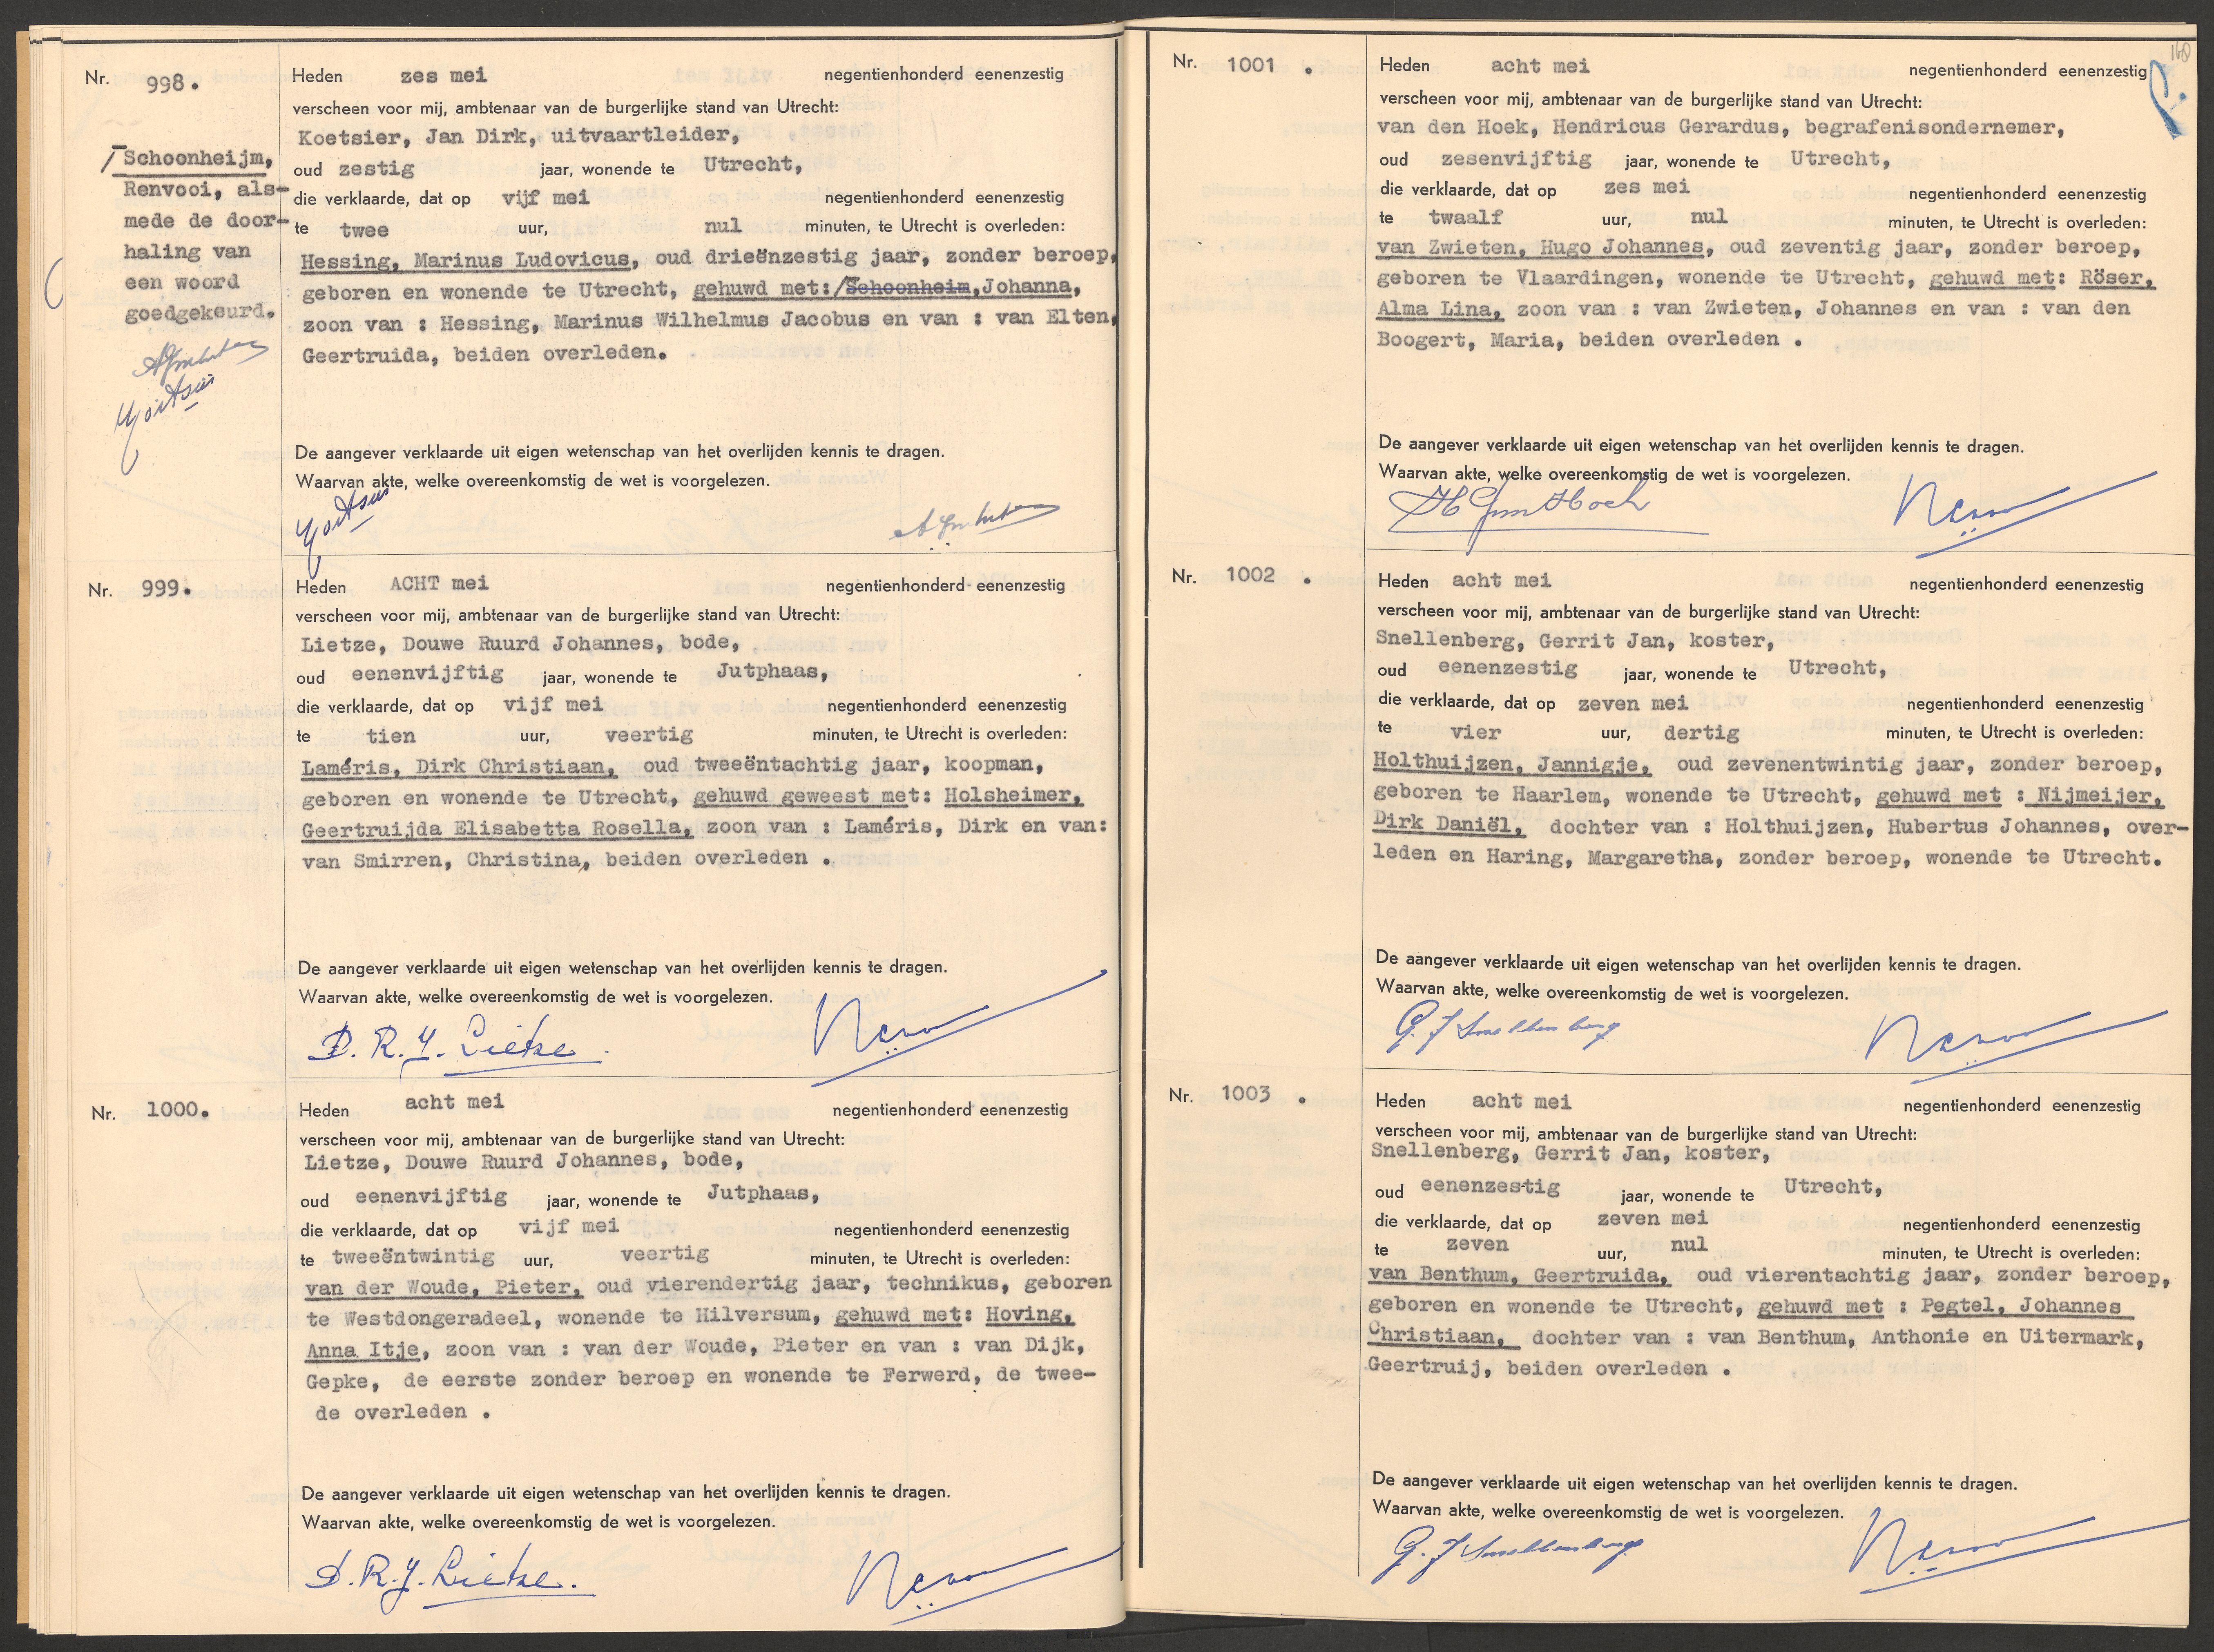 Nr. 998.
/ Schoonheijm,
Renvooi, als-
mede de door-
haling van
een woord
goedgekeurd.
Heden zes mei negentienhonderd eenenzestig
verscheen voor mij, ambtenaar van de burgerlijke stand van Utrecht:
Koetsier, Jan Dirk, uitvaartleider,
oud zestig jaar, wonende te Utrecht,
die verklaarde, dat op vijf mei negentienhonderd eenenzestig
te twee uur, nul minuten, te Utrecht is overleden:
Hessing, Marinus Ludovicus, oud drieënzestig jaar, zonder beroep,
geboren en wonende te Utrecht, gehuwd met:/Schoonheim,Johanna,
zoon van : Hessing, Marinus Wilhelmus Jacobus en van : van Elten,
Geertruida, beiden overleden.
De aangever verklaarde uit eigen wetenschap van het overlijden kennis te dragen.
Waarvan akte, welke overeenkomstig de wet is voorgelezen.
Nr. 999.
Heden ACHT mei negentienhonderd eenenzestig
verscheen voor mij, ambtenaar van de burgerlijke stand van Utrecht:
Lietze, Douwe Ruurd Johannes, bode,
oud eenenvijftig jaar, wonende te Jutphaas,
die verklaarde, dat op vijf mei negentienhonderd eenenzestig
te tien uur, veertig minuten, te Utrecht is overleden:
Laméris, Dirk Christiaan, oud tweeëntachtig jaar, koopman,
geboren en wonende te Utrecht, gehuwd geweest met: Holsheimer,
Geertruijda Elisabetta Rosella, zoon van : Laméris, Dirk en van:
van Smirren, Christina, beiden overleden .
De aangever verklaarde uit eigen wetenschap van het overlijden kennis te dragen.
Waarvan akte, welke overeenkomstig de wet is voorgelezen.
D. R. J. Lietze.
Nr. 1000.
Heden acht mei negentienhonderd eenenzestig
verscheen voor mij, ambtenaar van de burgerlijke stand van Utrecht:
Lietze, Douwe Ruurd Johannes, bode,
oud eenenvijftig jaar, wonende te Jutphaas,
die verklaarde, dat op vijf mei negentienhonderd eenenzestig
te tweeëntwintig uur, veertig minuten, te Utrecht is overleden:
van der Woude, Pieter, oud vierendertig jaar, technikus, geboren
te Westdongeradeel, wonende te Hilversum, gehuwd met: Hoving,
Anna Itje, zoon van : van der Woude, Pieter en van : van Dijk,
Gepke, de eerste zonder beroep en wonende te Ferwerd, de twee-
de overleden .
De aangever verklaarde uit eigen wetenschap van het overlijden kennis te dragen.
Waarvan akte, welke overeenkomstig de wet is voorgelezen.
D. R. J. Lietze.
160
Nr. 1001 .
Heden acht mei negentienhonderd eenenzestig
verscheen voor mij, ambtenaar van de burgerlijke stand van Utrecht:
van den Hoek, Hendricus Gerardus, begrafenisondernemer,
oud zesenvijftig jaar, wonende te Utrecht,
die verklaarde, dat op zes mei negentienhonderd eenenzestig
te twaalf uur, nul minuten, te Utrecht is overleden:
van Zwieten, Hugo Johannes, oud zeventig jaar, zonder beroep,
geboren te Vlaardingen, wonende te Utrecht, gehuwd met: Röser,
Alma Lina, zoon van : van Zwieten, Johannes en van : van den
Boogert, Maria, beiden overleden .
De aangever verklaarde uit eigen wetenschap van het overlijden kennis te dragen.
Waarvan akte, welke overeenkomstig de wet is voorgelezen.
Nr. 1002 .
Heden acht mei negentienhonderd eenenzestig
verscheen voor mij, ambtenaar van de burgerlijke stand van Utrecht:
Snellenberg, Gerrit Jan, koster,
oud eenenzestig jaar, wonende te Utrecht,
die verklaarde, dat op zeven mei negentienhonderd eenenzestig
te vier uur, dertig minuten, te Utrecht is overleden:
Holthuijzen, Jannigje, oud zevenentwintig jaar, zonder beroep,
geboren te Haarlem, wonende te Utrecht, gehuwd met : Nijmeijer,
Dirk Daniël, dochter van : Holthuijzen, Hubertus Johannes, over-
leden en Haring, Margaretha, zonder beroep, wonende te Utrecht.
De aangever verklaarde uit eigen wetenschap van het overlijden kennis te dragen.
Waarvan akte, welke overeenkomstig de wet is voorgelezen.
G. J Snellenberg
Nr. 1003 .
Heden acht mei negentienhonderd eenenzestig
verscheen voor mij, ambtenaar van de burgerlijke stand van Utrecht:
Snellenberg, Gerrit Jan, koster,
oud eenenzestig jaar, wonende te Utrecht,
die verklaarde, dat op zeven mei negentienhonderd eenenzestig
te zeven uur, nul minuten, te Utrecht is overleden:
van Benthum, Geertruida, oud vierentachtig jaar, zonder beroep,
geboren en wonende te Utrecht, gehuwd met : Pegtel, Johannes
Christiaan, dochter van : van Benthum, Anthonie en Uitermark,
Geertruij, beiden overleden .
De aangever verklaarde uit eigen wetenschap van het overlijden kennis te dragen.
Waarvan akte, welke overeenkomstig de wet is voorgelezen.
G. J Snellenberg